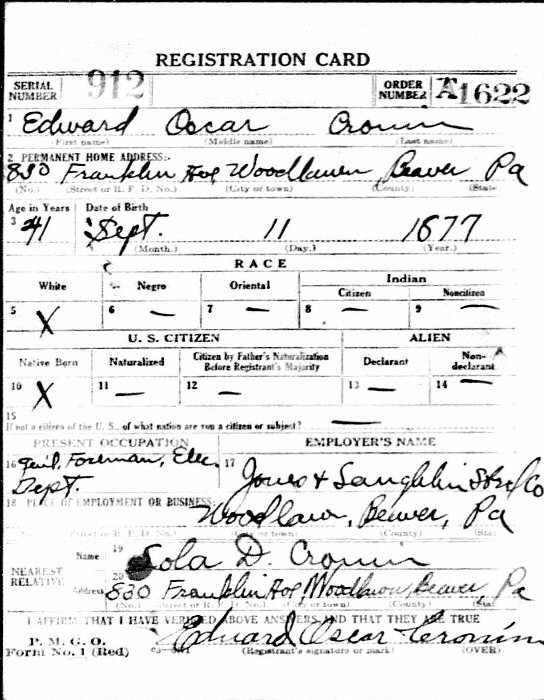 REGISTRATION CARD
SERIAL NUMBER 912 ORDER NUMBER A1622
1 Edward Oscar Cronin
(First name) (Middle name) (Last name)
2 PERMANENT HOME ADDRESS:
830 Franklin Ave Woodlawn, Beaver Pa
(No.) (Street or R. F. D. No.) (City or town) (County) (State)
Age in Years Date of Birth
3 41 4 Sept. 11 1877
(Month.) (Day.) (Year.)
RACE
White Negro Oriental Indian
Citizen Noncitizen
5 X 6 — 7 — 8 — 9 —
U. S. CITIZEN ALIEN
Native Born Naturalized Citizen by Father's Naturalization Before Registrant's Majority Declarant Non-declarant
10 X 11 — 12 — 13 — 14 —
15
If not a citizen of the U. S., of what nation are you a citizen or subject? —
PRESENT OCCUPATION EMPLOYER'S NAME
16 Gen'l, Foreman, Elec. Dept. 17 Jones & Laughlin Steel Co
18 PLACE OF EMPLOYMENT OR BUSINESS:
Woodlawn, Beaver, Pa
(No.) (Street or R. F. D. No.) (City or town) (County) (State)
NEAREST RELATIVE
Name 19 Lola D. Cronin
Address 20 830 Franklin Ave Woodlawn, Beaver, Pa
(No.) (Street or R. F. D. No.) (City or town) (County) (State)
I AFFIRM THAT I HAVE VERIFIED ABOVE ANSWERS AND THAT THEY ARE TRUE
P. M. G. O.
Form No. 1 (Red) Edward Oscar Cronin
(Registrant's signature or mark) (OVER)